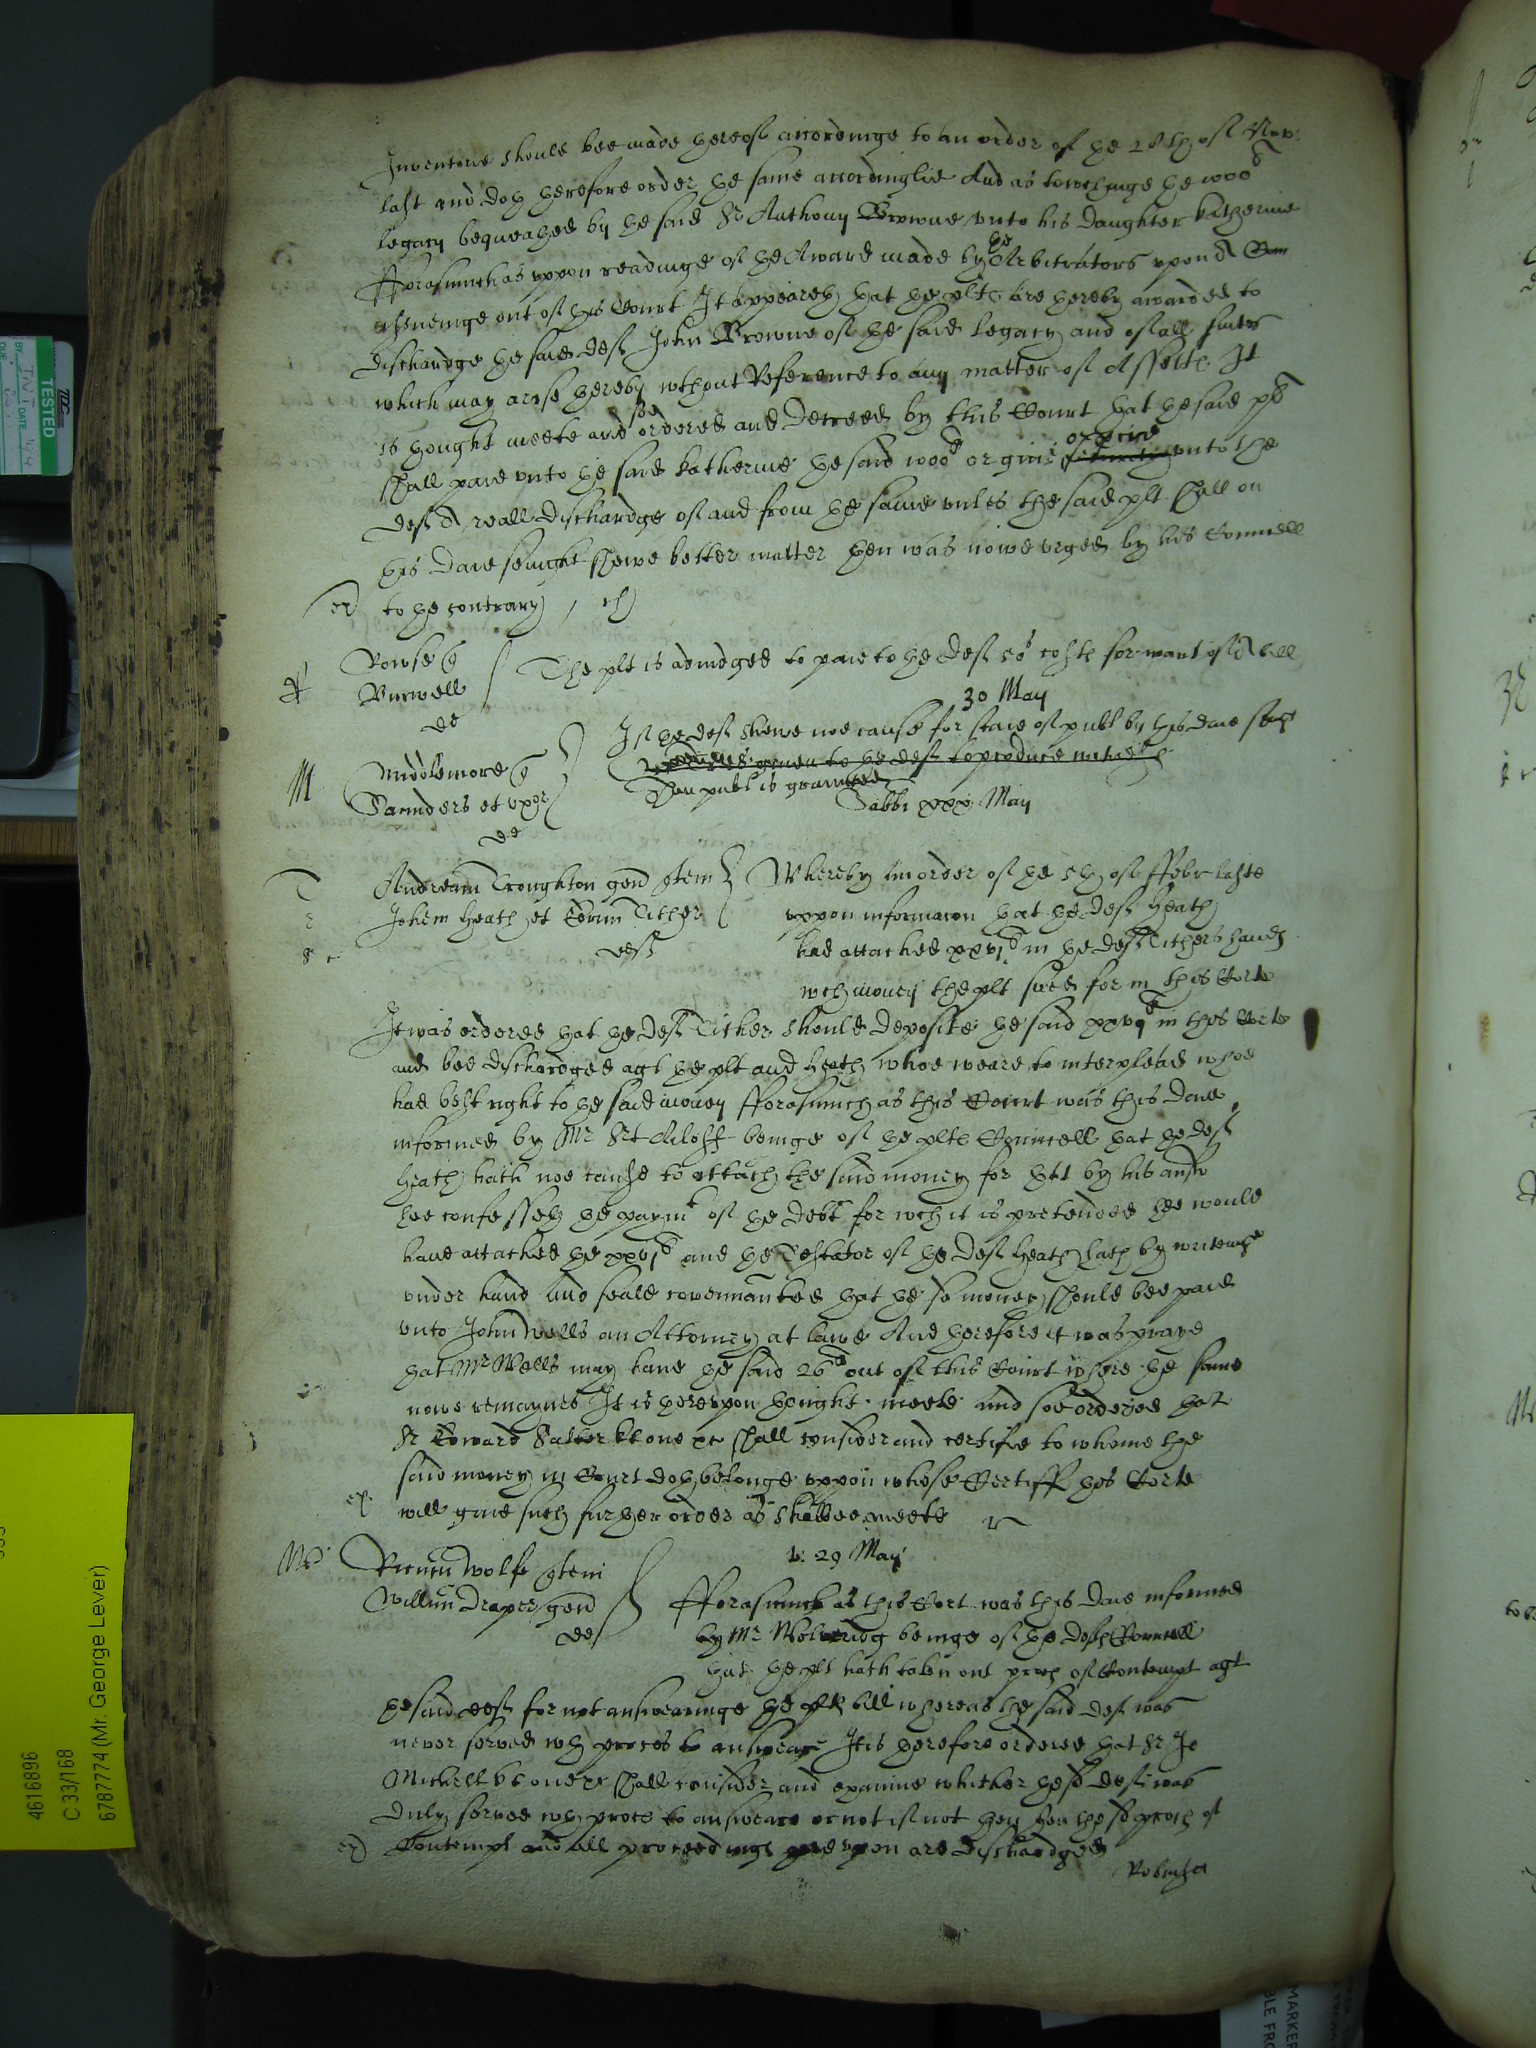 Inventorie should bee made thereof accordinge to an order of the 28th of Nov:
last and doth therefore order the same accordinglie And as towchinge the 1000l
legacy bequeathed by the said Sr Anthony Browne unto his daughter Katherine
fforasmuch as uppon readinge of the Award made by the Arbitrators upon a Com
issueinge out of this Court It appeareth that the plts are thereby awarded to
dischardge the said deft John Browne of the said legacy and of all suites
which may arise thereby wthout Reference to any matter of Assetts It
is thought meete and soe ordered and decreed by this Court that the said plt
shall paie unto the said Katherine the said 1000l or give or procure unto the
deft a reall dischardge of and from the same unles the said plt shall on
this daie sennight shewe better matter then was nowe urged by his Councell
ex to the contrary
Rowse q
Burwell
def
The plt is adiudged to paie to the deft 50s costs for want of a bill
30 May
M
Middlemore q
Saunders et uxor
def
If the deft shewe noe cause for staie of publ by this daie sennight
daies given to the deft to produce witnesses
Then publ is graunted
Sabbi xxx May
T
Andream Troughton gen quem
Johem Heath et Edrum Tither
deft
Whereby an order of the 5th of ffebr laste
uppon informacon that the deft Heath
had attached xxvjl in the deft Tithers hands
wch money the plt sued for in this Corte
It was ordered that the deft Tither should deposite the said xxvjl in this Corte
and bee dischardged agt the plt and Heath whoe weare to interpleade whoe
had best right to the said money fforasmuch as this Court was this daie
informed by Mr Srt Aloff beinge of the plts Councell that the deft
Heath hath noe cause to attach the said money for that by his answ
hee confesseth the paymt of the debt for wch it is pretended hee would
have attached the xxvjl and the Testator of the deft Heath hath by writeinge
under hand and seale covennanted that the sd money should bee paid
unto John Wells an Attorney at lawe And therefore it was praied
that Mr Wells may have the said 26l out of this Court where the same
nowe remaynes It is thereupon thought meete and soe ordered that
Sr Edward Salter kt one &c shall consider and certifie to whome the
said money in Court doth belonge uppon whose Certiff this Corte
ex will give such further order as shalbee meete
v: 29 May
Wolfe quem
Willm Draper gen
def
fforasmuch as this Cort was this daie informed
by Mr Wolveridg beinge of the defts Councell
that the plt hath taken out proces of Contempt agt
the said deft for not answearinge the plts bill whereas the said deft was
never served wth proces to answeare It is therefore ordered that Sr Jo
Michell kt one &c shall consider and examine whither the sd deft was
duly served wth proces to answeare or not if not then the sd proces of
ex Contempt and all proceedings thereupon are dischardged
TESTED
DATE
4616896
C 33/168
6787774 (Mr. George Lever)
MARKER